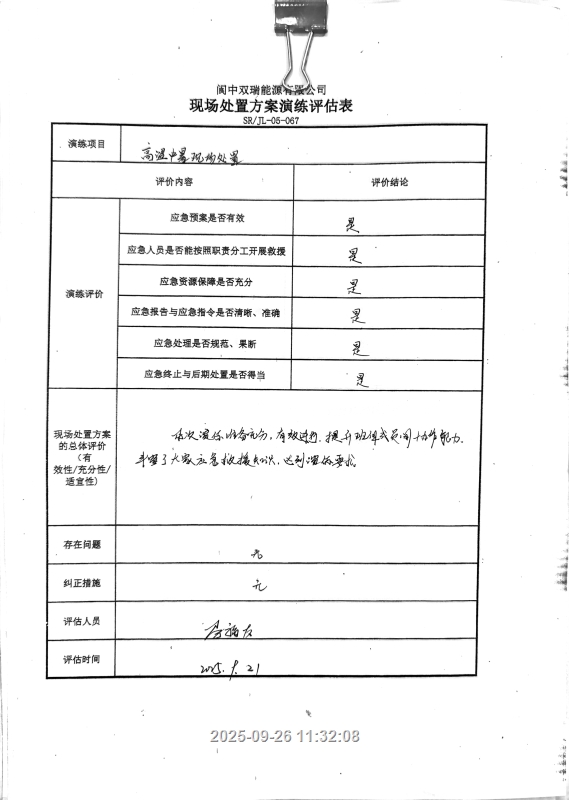 阆中双瑞能源有限公司
现场处置方案演练评估表
SR/JL-05-067
演练项目 高温中暑现场处置
评价内容 评价结论
演练评价
应急预案是否有效 是
应急人员是否能按照职责分工开展救援 是
应急资源保障是否充分 是
应急报告与应急指令是否清晰、准确 是
应急处理是否规范、果断 是
应急终止与后期处置是否得当 是
现场处置方案
的总体评价
(有
效性/充分性/
适宜性)
本次演练准备充分,有效进行,提升班组成员间协作能力,
丰富了大家应急救援知识,达到演练要求。
存在问题 无
纠正措施 无
评估人员
评估时间 2025.9.21
2025-09-26 11:32:08